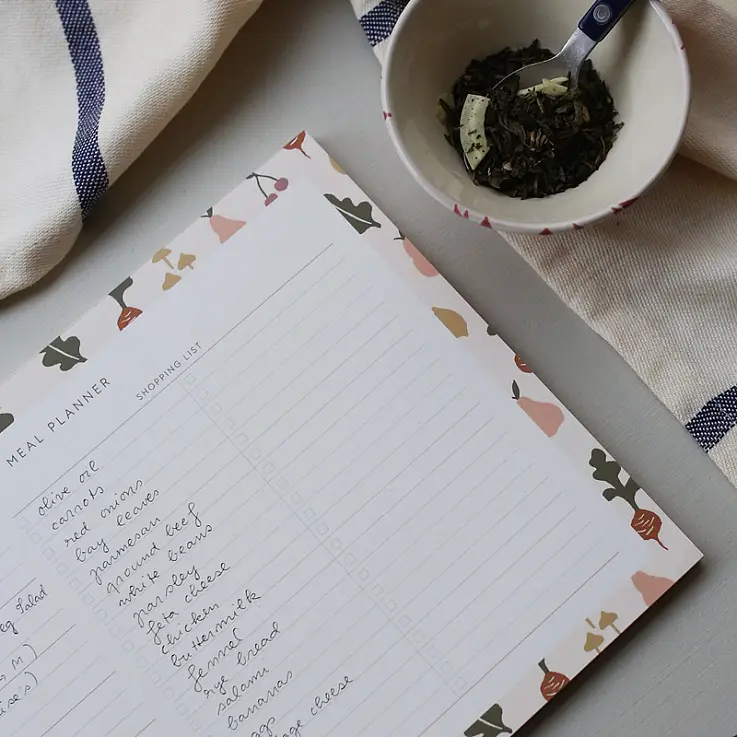 MEAL PLANNER
SHOPPING LIST
olive oil
carrots
red onions
bay leaves
parmesan
ground beef
white beans
parsley
feta cheese
chicken
buttermilk
fennel
rye bread
salami
bananas
cheese
Salad